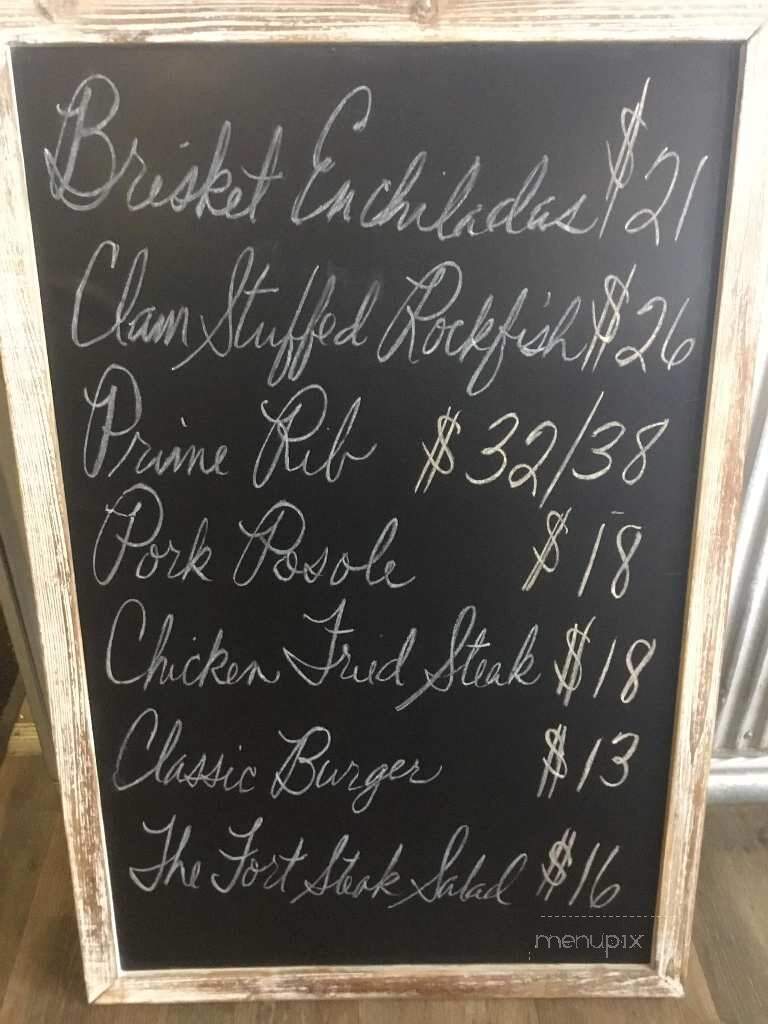 Brisket Enchiladas $21
Clam Stuffed Rockfish $26
Prime Rib $32/38
Pork Posole $18
Chicken Fried Steak $18
Classic Burger $13
The Fort Steak Salad $16
menupix